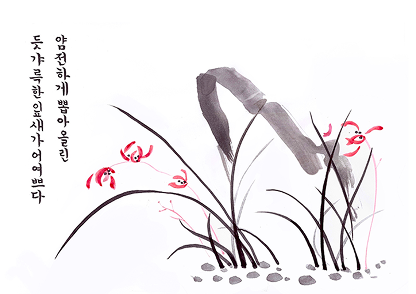 얌전하게 뽑아 올린
듯 갸륵한 잎새가 어여쁘다